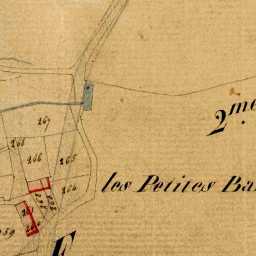 2.me
267
268
266
265
264
les Petites Ba
259
F